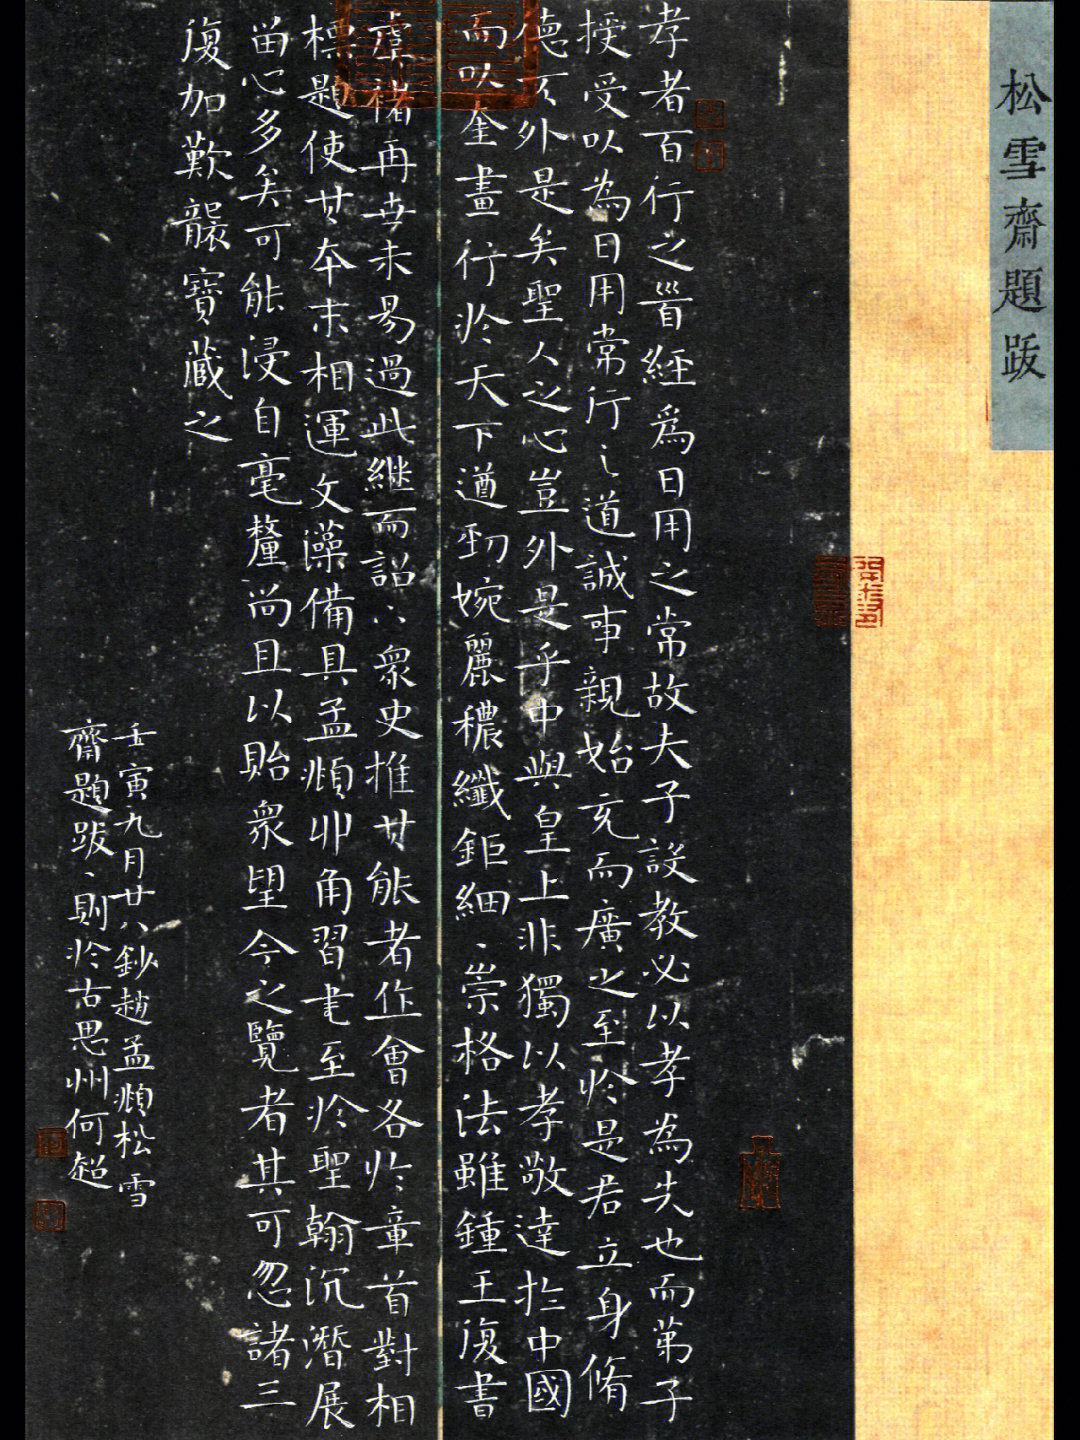 松雪齋題跋
孝者百行之首經爲日用之常故夫子設教必以孝為先也而弟子
授受以為日用常行之道誠事親始充而廣之至於是君立身脩
德不外是矣聖人之心豈外是乎中興皇上非獨以孝敬達於中國
而以奎畫行於天下遒勁婉麗穠纖鉅細、崇格法雖鍾王復書
虞褚再世未易過此繼而詔、衆史推其能者作會各於章首對相
標題使其本末相運文藻備具孟頫丱角習書至於聖翰沉潛展
畱心多矣可能浸自毫釐尚且以貽衆望今之覽者其可忽諸三
復加歎襲寶藏之
壬寅九月廿八鈔趙孟頫松雪
齋題跋、則於古思州何超